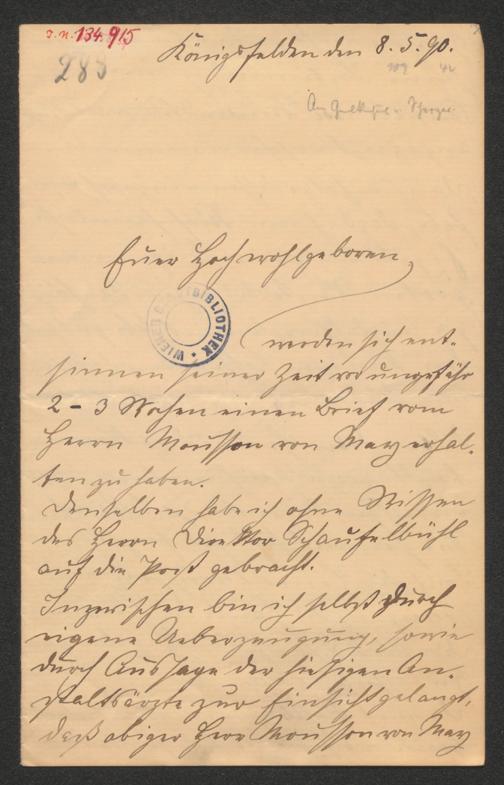 J.N. 134.915
285
Königsfelden den 8. 5. 90.
Euer Hochwohlgeboren,
WIENER STADTBIBLIOTHEK
werden sich ent-
sinnen seiner Zeit vor ungefähr
2 - 3 Wochen einen Brief vom
Herrn Mousson von May erhal-
ten zu haben.
Denselben habe ich ohne Wissen
des Herrn Direktor Schaufelbühl
auf die Post gebracht.
Inzwischen bin ich selbst durch
eigene Ueberzeugung, sowie
durch Aussage der hiesigen An-
staltsärzte zur Einsicht gelangt,
daß obiger Herr Mousson von May